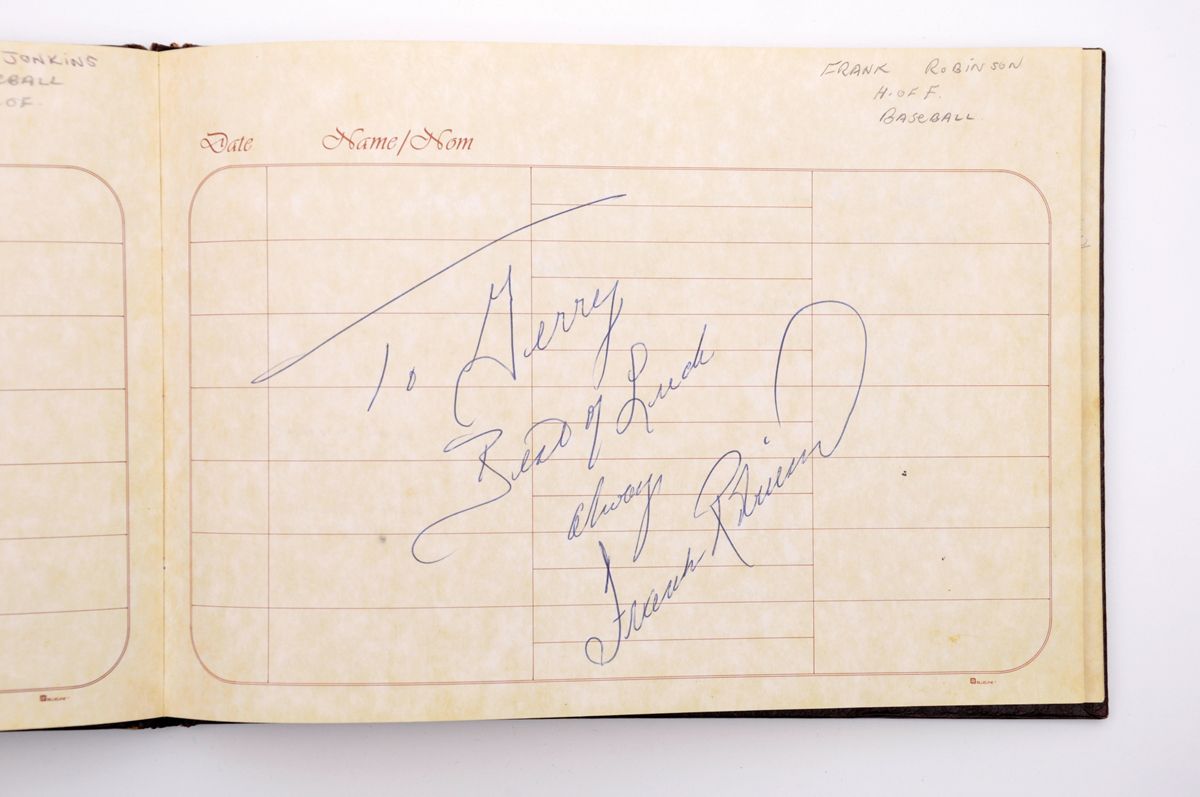 JONKINS
OF.
FRANK ROBINSON
H. OF F.
BASEBALL
Date Name/Nom
To Gerry
Best of Luck
always
Frank Robinson